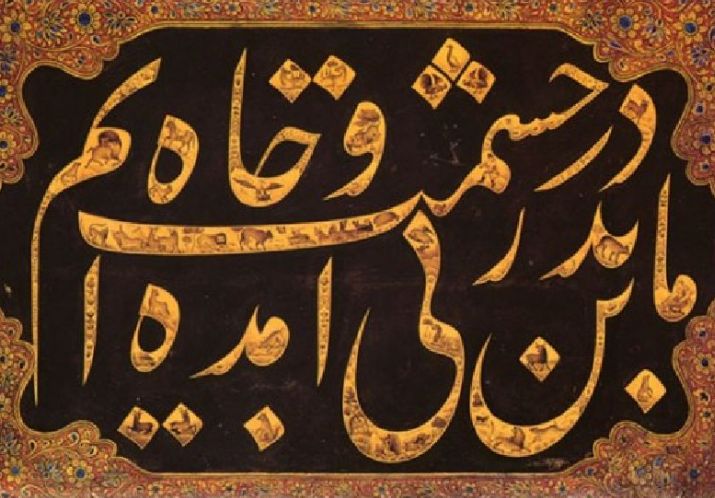 ما بدین در پی حشمت و جاه امده ایم